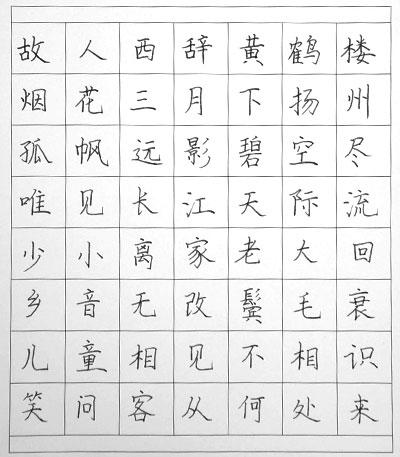 故人西辞黄鹤楼
烟花三月下扬州
孤帆远影碧空尽
唯见长江天际流
少小离家老大回
乡音无改鬓毛衰
儿童相见不相识
笑问客从何处来